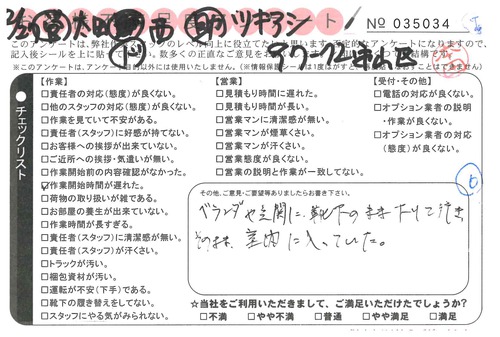 ト
No 035034
このアンケートは、弊社
記入後シールを上に貼って
【作業】
□責任者の対応(態度)が良くない。
□他のスタッフの対応(態度)が良くない。
□作業を見ていて不安がある。
□責任者(スタッフ)に好感が持てない。
□お客様への挨拶が出来ていない。
□ご近所への挨拶・気遣いが無い。
□作業開始前の内容確認がなかった。
☑作業開始時間が遅れた。
□荷物の取り扱いが雑である。
□お部屋の養生が出来ていない。
□作業時間が長すぎる。
□責任者(スタッフ)に清潔感が無い。
□責任者(スタッフ)が汗くさい。
□トラックが汚い。
□梱包資材が汚い。
□運転が不安(下手)である。
□靴下の履き替えをしてない。
□スタッフにやる気がみられない。
【営業】
□見積もり時間に遅れた。
□見積もり時間が長い。
□営業マンに清潔感が無い。
□営業マンが煙草くさい。
□営業マンが汗くさい。
□営業態度が良くない。
□営業の説明と作業が一致してない。
【受付・その他】
□電話の対応が良くない。
□オプション業者の説明
・作業が良くない。
□オプション業者の対応
(態度)が良くない。
チェックリスト
その他、ご意見・ご要望等ありましたらお書き下さい。
ベランダや玄関に、靴下のまま
そのまま、室内に入っていた。
☆当社をご利用いただきまして、ご満足いただけたでしょうか?
□不満 □やや不満 □普通 □やや満足 □満足